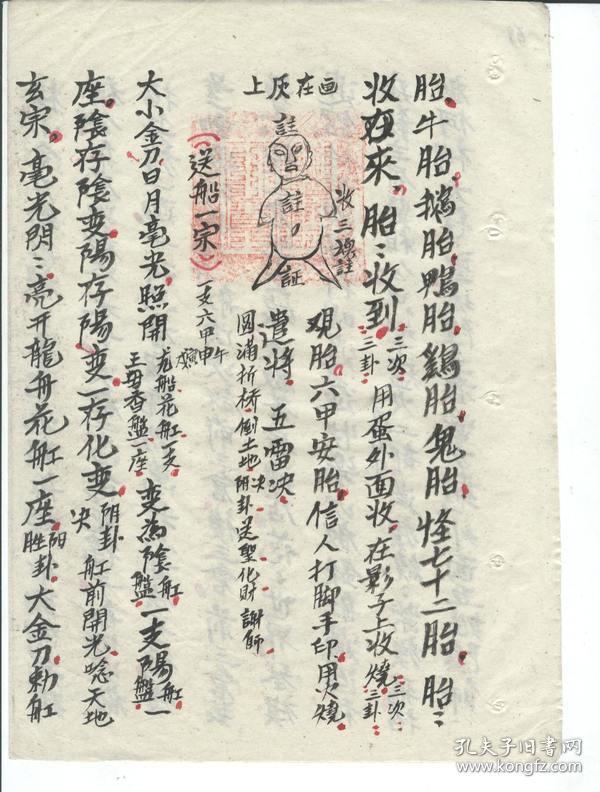 胎、牛胎、鵝胎、鴨胎、鷄胎、鬼胎、怪七十二胎、胎〻
收在來、胎〻收到三次三卦用蛋外面收、在影子上收燒三次三卦
觀胎六甲安胎、信人打脚手印、用火燒
遣将、五雷决、
圆滿折桥倒土地决阴卦送聖化財謝師
画在灰上
註
註
証
收三魂註
(送船一宋)
一支六甲
大小金刀日月毫光、照開龙船花舡一支王母香盤一座变為陰舡盤一支陽舡盤一
座、陰存陰变陽存陽变一存化变阴卦决舡前開光唸天地
玄宋、毫光閃〻、亮开龍舟花舡一座阳勝卦大金刀勅舡
孔夫子旧书网
www.kongfz.com